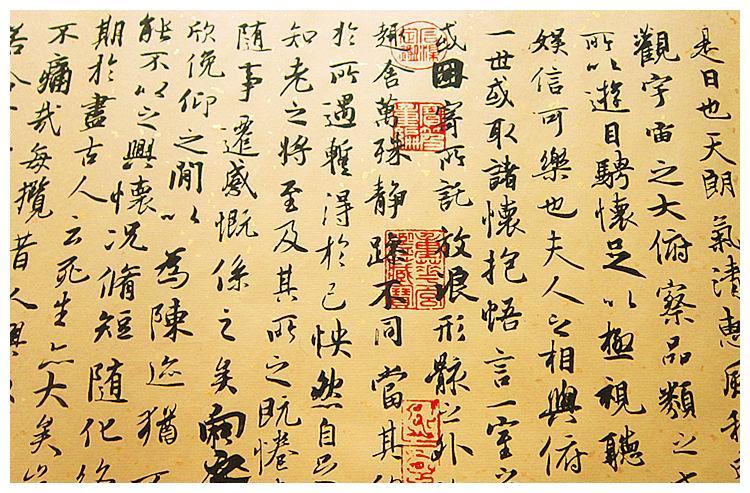 是日也天朗氣清惠風和
觀宇宙之大俯察品類之
所以遊目騁懷足以極視聽
娛信可樂也夫人之相與俯
一世或取諸懷抱悟言一室之
或因寄所託放浪形骸之外
趣舍萬殊静躁不同當其
於所遇暫得於己怏然自足
知老之將至及其所之既惓
隨事遷感慨係之矣向之
欣俛仰之閒以為陳迹猶不
能不以之興懷况脩短隨化終
期於盡古人云死生亦大矣豈
不痛哉每攬昔人興
若合